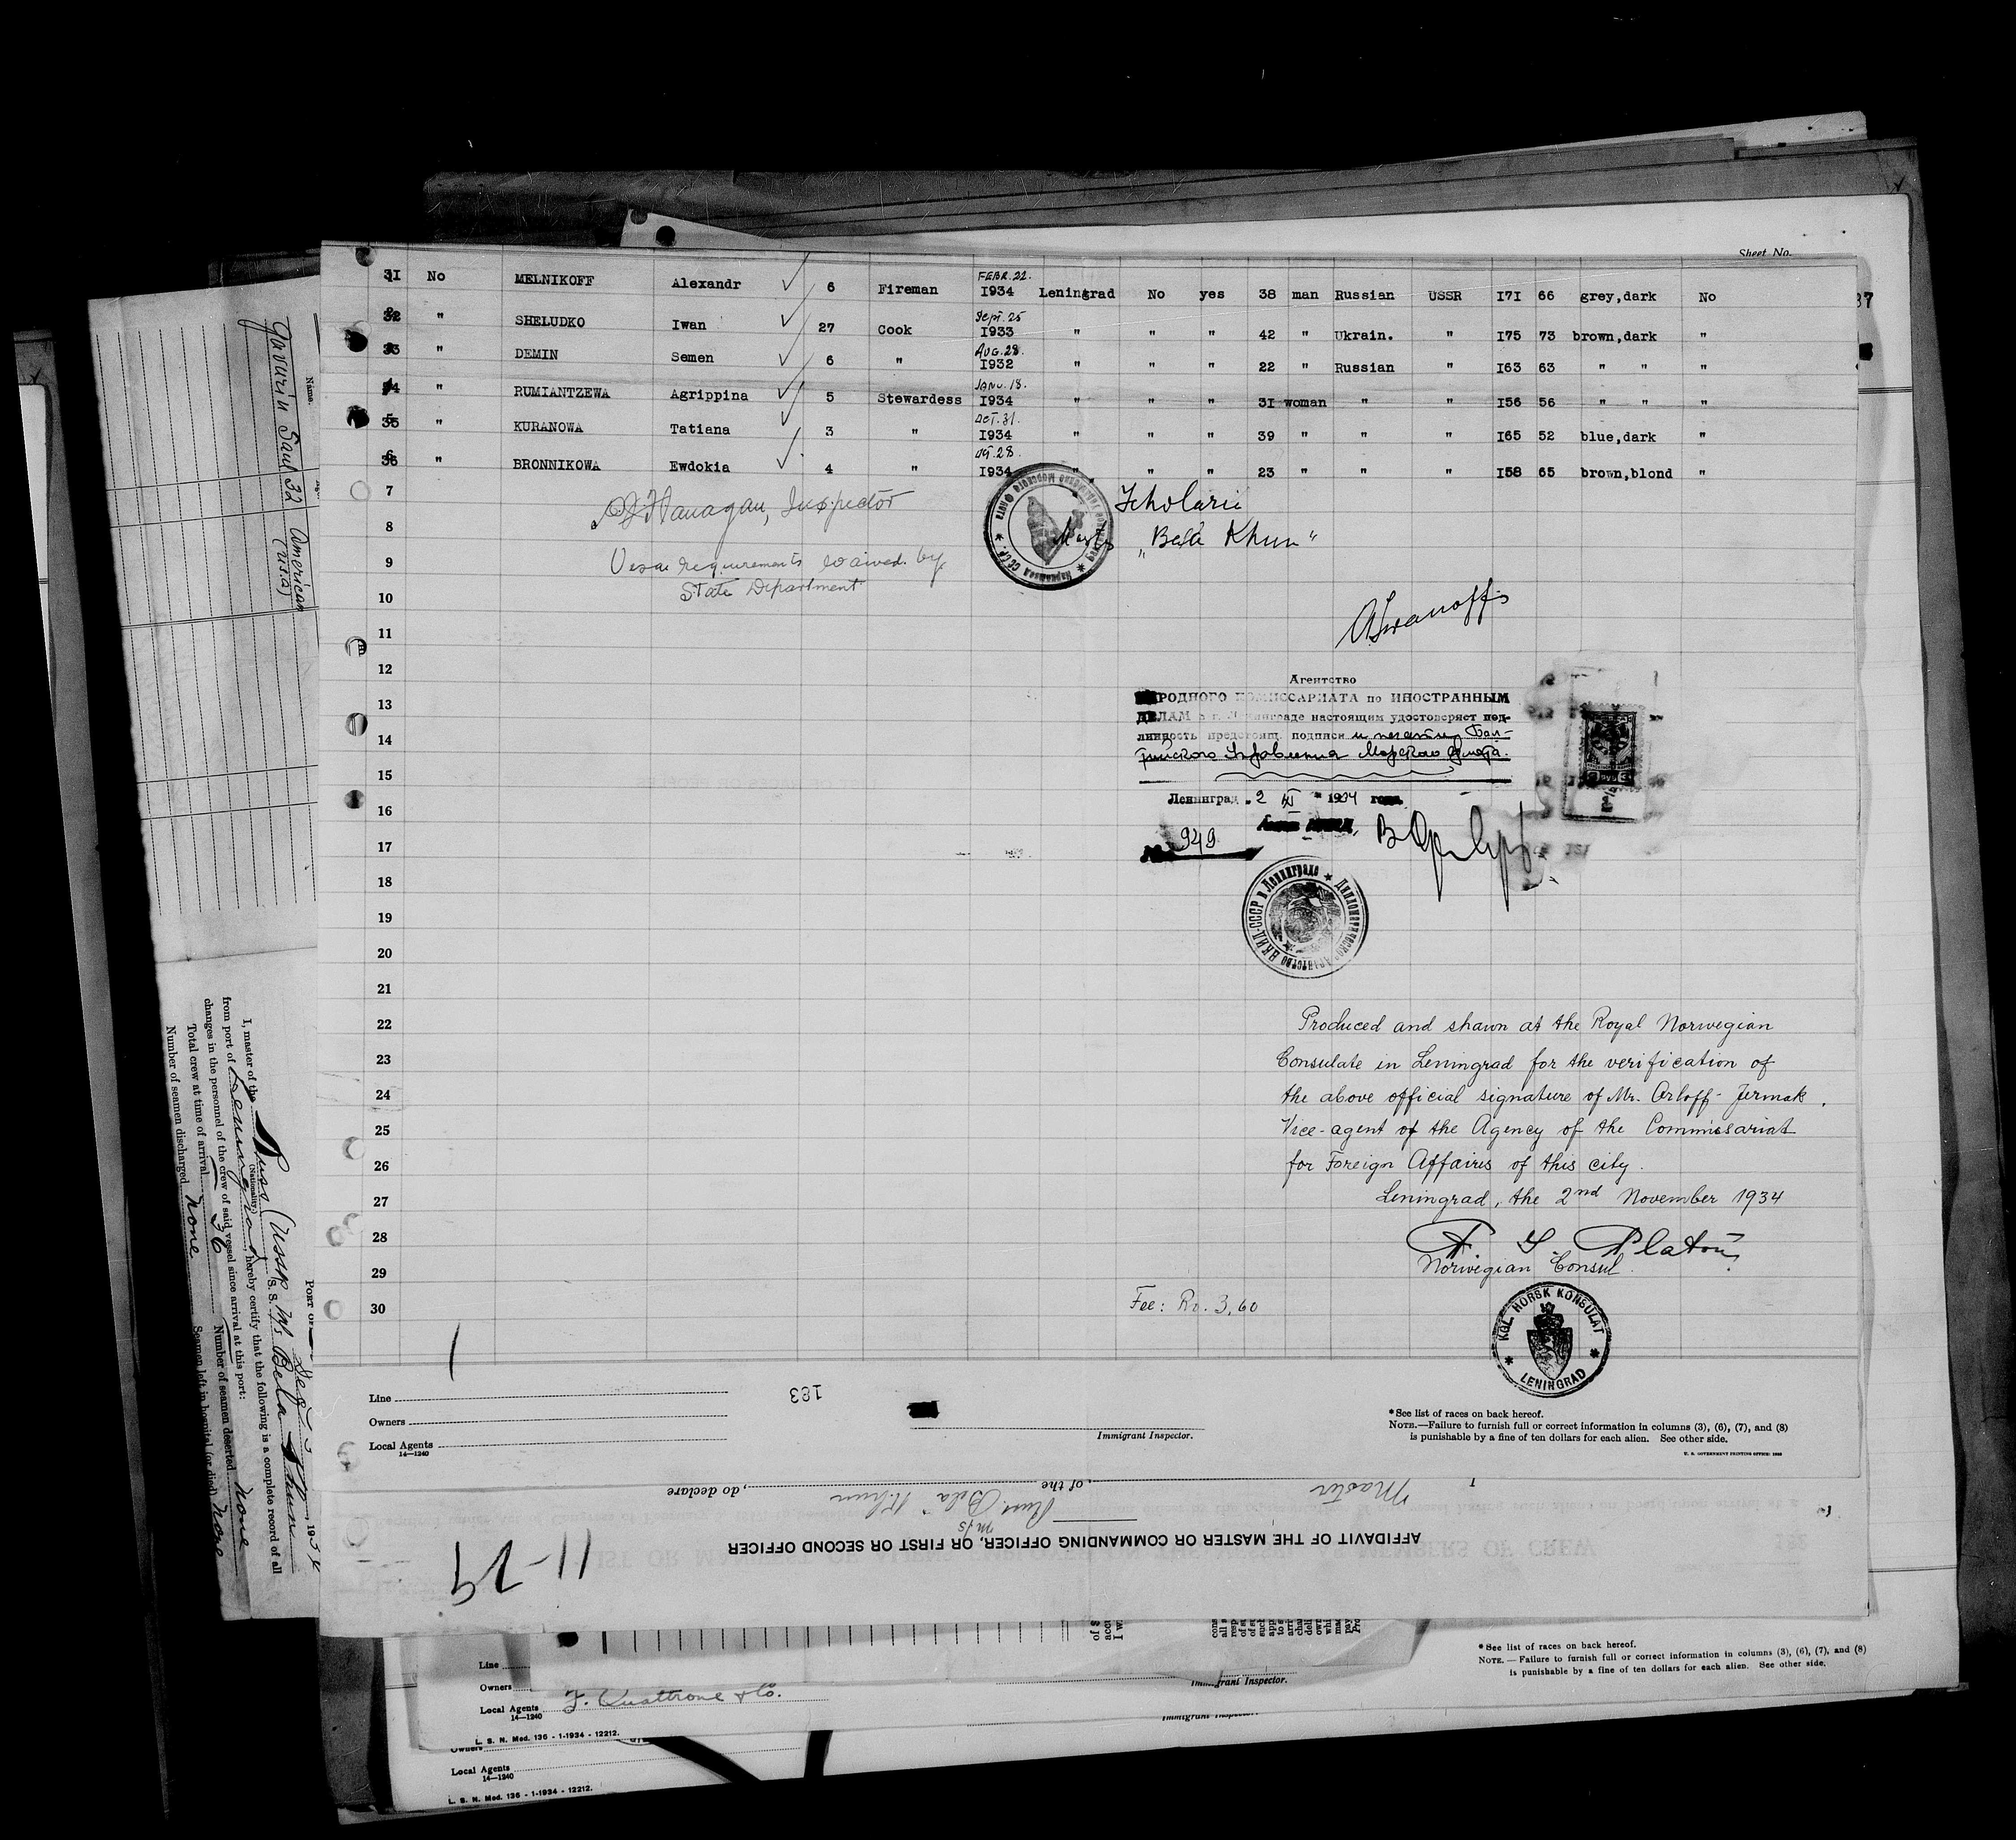 Sheet No.
37
31 No MELNIKOFF Alexandr ✓ 6 Fireman FEBR. 22. I934 Leningrad No yes 38 man Russian USSR I7I 66 grey,dark No
32 " SHELUDKO Iwan ✓ 27 Cook Sept. 25 I933 " " " 42 " Ukrain. " I75 73 brown,dark "
33 " DEMIN Semen ✓ 6 " AUG. 28. I932 " " " 22 " Russian " I63 63 " " "
34 " RUMIANTZEWA Agrippina ✓ 5 Stewardess JANU. 18. I934 " " " 3I woman " " I56 56 " " "
35 " KURANOWA Tatiana ✓ 3 " OCT. 31. I934 " " " 39 " " " I65 52 blue,dark "
36 " BRONNIKOWA Ewdokia ✓ 4 " 28. I934 " " " 23 " " " I58 65 brown,blond "
7
Flanagan, Inspector
8
"Bela Khun"
9
Visa requirements waived by
10
State Department
11
12
Агентство
13
НАРОДНОГО КОМИССАРИАТА по ИНОСТРАННЫМ
ДЕЛАМ в г. Ленинграде настоящим удостоверяет под-
14
линность предстоящ. подписи и печати Бал-
тийского Управления Морского Флота.
15
16
Ленинград 2 XI 1934 года.
17
№ 949
18
Дипломатическое Агентство НКИД-СССР в Ленинграде
19
20
21
22
Produced and shawn at the Royal Norwegian
23
Consulate in Leningrad for the verification of
24
the above official signature of Mr. Orloff-Jermak,
25
Vice-agent of the Agency of the Commissariat
26
for Foreign Affaires of this city.
27
Leningrad, the 2nd November 1934
28
Platou
29
Norwegian Consul
30
Fee: Ro. 3,60
KGL. NORSK KONSULAT
LENINGRAD
Line
183
Owners
Local Agents
14—1240
Immigrant Inspector.
*See list of races on back hereof.
NOTE.—Failure to furnish full or correct information in columns (3), (6), (7), and (8)
is punishable by a fine of ten dollars for each alien. See other side.
U. S. GOVERNMENT PRINTING OFFICE: 1933
AFFIDAVIT OF THE MASTER OR COMMANDING OFFICER, OR FIRST OR SECOND OFFICER
I Master of the Russ. M/s "Bela Khun", do declare
11-29
Name.
Gavurin Saul 32 American
(visa)
PORT OF 193
I, master of the Russ (USSR) S. S. M/s Bela Khun
(Nationality)
from port of Leningrad, hereby certify that the following is a complete record of all
changes in the personnel of the crew of said vessel since arrival at this port:
Total crew at time of arrival 36 Number of seamen deserted None
Number of seamen discharged None Seamen left in hospital (or died) None
*See list of races on back hereof.
NOTE.—Failure to furnish full or correct information in columns (3), (6), (7), and (8)
is punishable by a fine of ten dollars for each alien. See other side.
Line
Owners
Local Agents F. Quattrone & Co.
14—1240
Immigrant Inspector.
L. S. N. Mod. 136 - 1-1934 - 12212.
Owners
Local Agents
14—1240
L. S. N. Mod. 136 - 1-1934 - 12212.